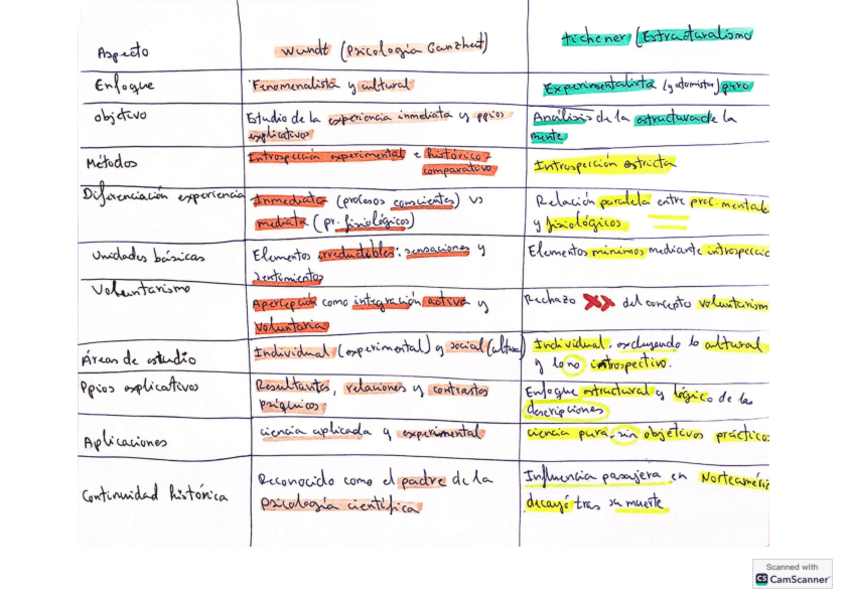 Aspecto
Wundt (Psicología Ganzheit)
Tichener (Estructuralismo
Enfoque
Fenomenalista y cultural
Experimentalista (y atomista) puro
Objetivo
Estudio de la experiencia inmediata y ppios
explicativos
Análisis de la estructura de la
mente
Métodos
Introspección experimental e histórico-
comparativo
Introspección estricta
Diferenciación experiencia
Inmediata (procesos conscientes) vs
mediata (pr. fisiológicos)
Relación paralela entre proc. mentale
y fisiológicos
Unidades básicas
Elementos irreductibles: sensaciones y
sentimientos
Elementos mínimos mediante introspecció
Voluntarismo
Apercepción como integración activa y
voluntaria
Rechazo del concepto voluntarism
Áreas de estudio
Individual (experimental) y social (cultural)
Individual, excluyendo lo cultural
y lo no introspectivo.
Ppios explicativos
Resultantes, relaciones y contrastes
psíquicos
Enfoque estructural y lógico de las
descripciones
Aplicaciones
ciencia aplicada y experimental
ciencia pura, sin objetivos prácticos
Continuidad histórica
Reconocido como el padre de la
psicología científica
Influencia pasajera en Norteaméri
decayó tras su muerte
Scanned with
CS CamScanner